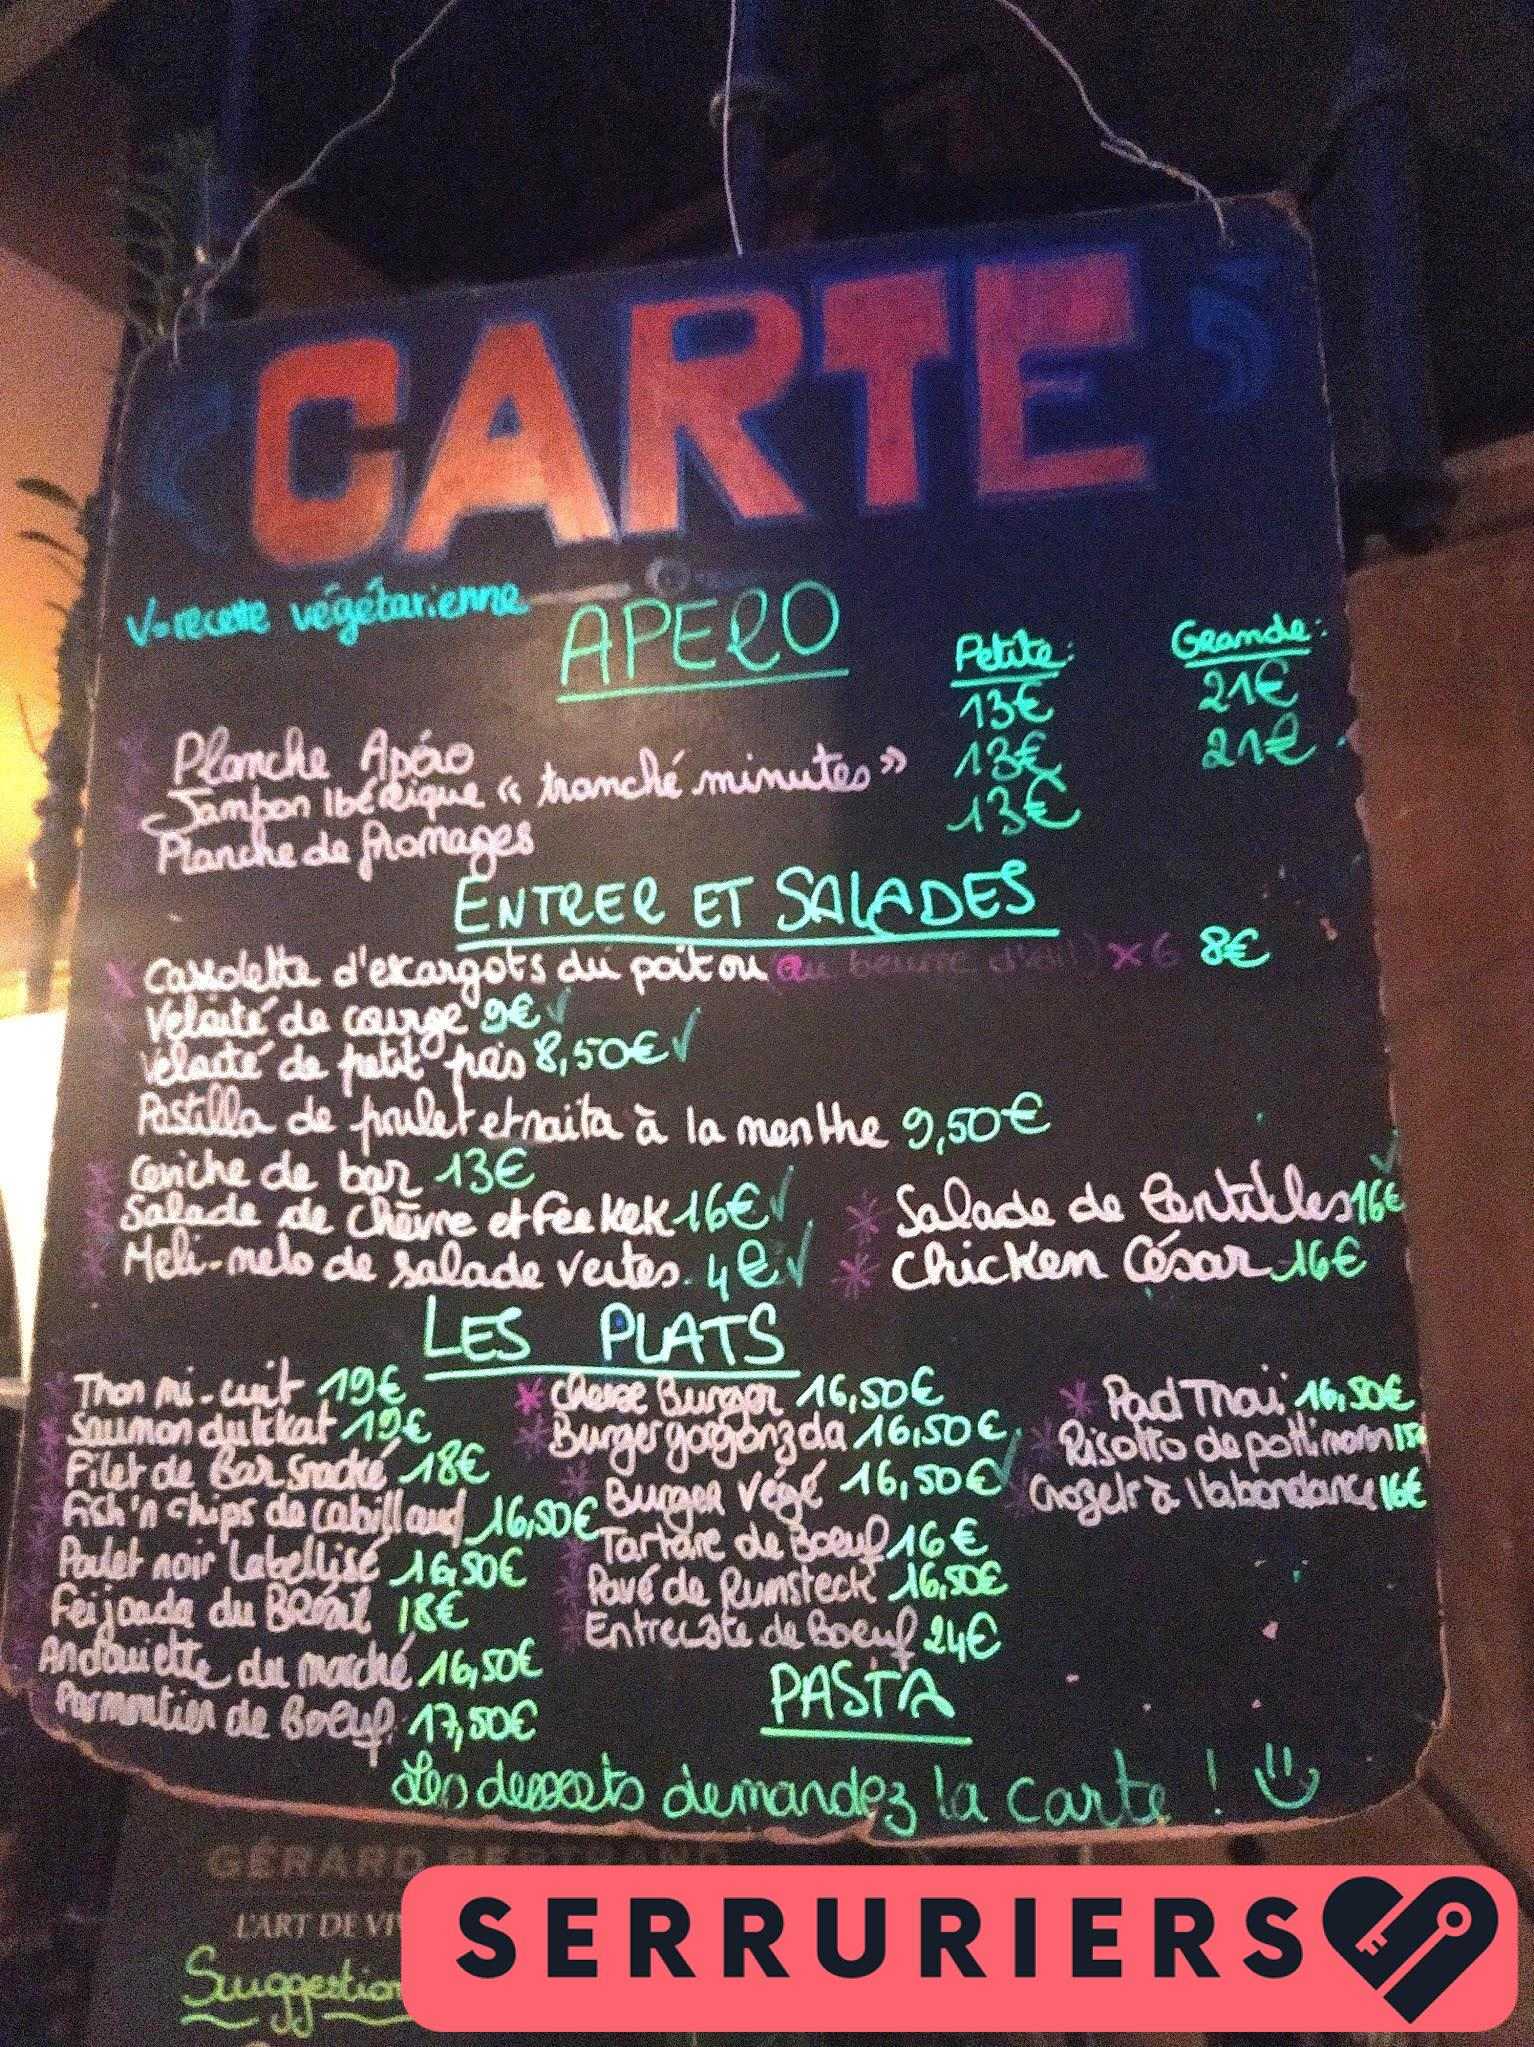 CARTE
V=recette végétarienne
APERO
Petite: Grande:
Planche Apéro 13€ 21€
Jambon Ibérique « tranché minutes » 13€ 21€
Planche de fromages 13€
ENTRER ET SALADES
Cassolette d'escargots du poitou (au beurre d'ail) x6 8€
Velouté de courge 9€ V
Velouté de petit pois 8,50€ V
Pastilla de poulet et raita à la menthe 9,50€
Ceviche de bar 13€
Salade de chèvre et feekek 16€ V
Meli-melo de salade vertes. 4€ V
Salade de lentilles 16€ V
Chicken César 16€
LES PLATS
Thon mi-cuit 19€
Saumon dukkat 19€
Filet de Bar Snacké 18€
Fish'n chips de cabillaud 16,50€
Poulet noir Labellisé 16,50€
Feijoada du Brésil 18€
Andouillette du marché 16,50€
Parmentier de Boeuf. 17,50€
Cheese Burger 16,50€
Burger gorgonzola 16,50€
Burger Végé 16,50€ V
Tartare de Boeuf 16€
Pavé de Rumsteck 16,50€
Entrecôte de Boeuf 24€
Pad Thai 16,50€
Risotto de potimaron 15€
Crozets à l'abondance 16€
PASTA
Les desserts demandez la carte !
GÉRARD BERTRAND
L'ART DE VI
Suggestion
SERRURIERS